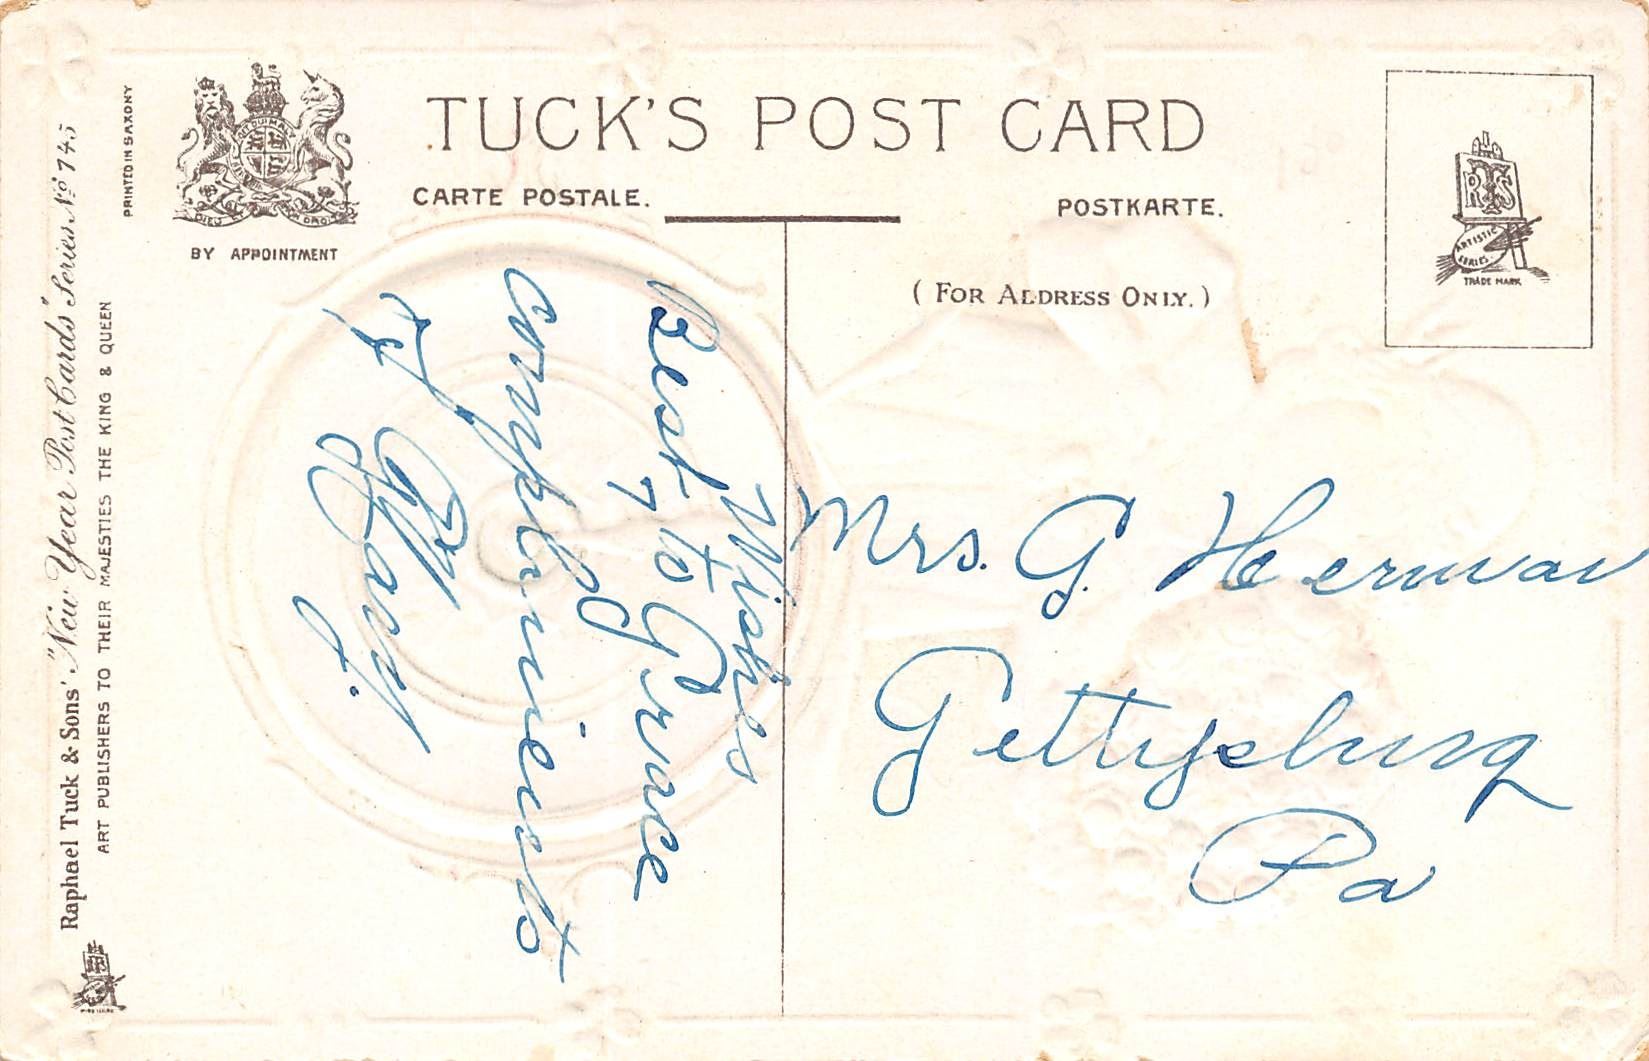 TUCK'S POST CARD
CARTE POSTALE.
POSTKARTE.
(FOR ADDRESS ONLY.)
BY APPOINTMENT
PRINTED IN SAXONY
Raphael Tuck & Sons' "New Year Post Cards" Series No 745
ART PUBLISHERS TO THEIR MAJESTIES THE KING & QUEEN
DIEU ET MON DROIT
RTS
ARTISTIC
SERIES
TRADE MARK
Wishes
Best to Grace
Compliments
of
Mary
Mrs. G. Herman
Gettysburg
Pa